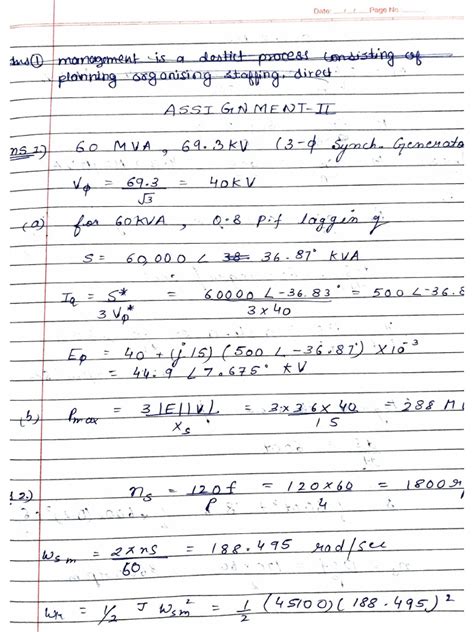 Date / / Page No.
Ans ① management is a destict process consisting of
planning organising staffing, direct
ASSIGNMENT-II
ns 1) 60 MVA, 69.3 KV (3-ϕ Synch. Generato
Vϕ = 69.3/√3 = 40KV
(a) for 60KVA, 0.8 p.f laggin g
S = 60,000 ∠ 36.87° KVA
Iq = S*/3Vϕ* = 60000 ∠-36.83°/3×40 = 500 ∠-36.8
Eϕ = 40 + (j15) (500 ∠-36.87°) ×10⁻³
= 44.9 ∠7.675° KV
(b) Pmax = 3|E||V|/Xs = 3×36×40/15 = 288 M
2.) ns = 120f/P = 120×60/4 = 1800
Wsm = 2×ns/60 = 188.495 rad/sec
Wk = 1/2 J Wsm² = 1/2 (45100)(188.495)²